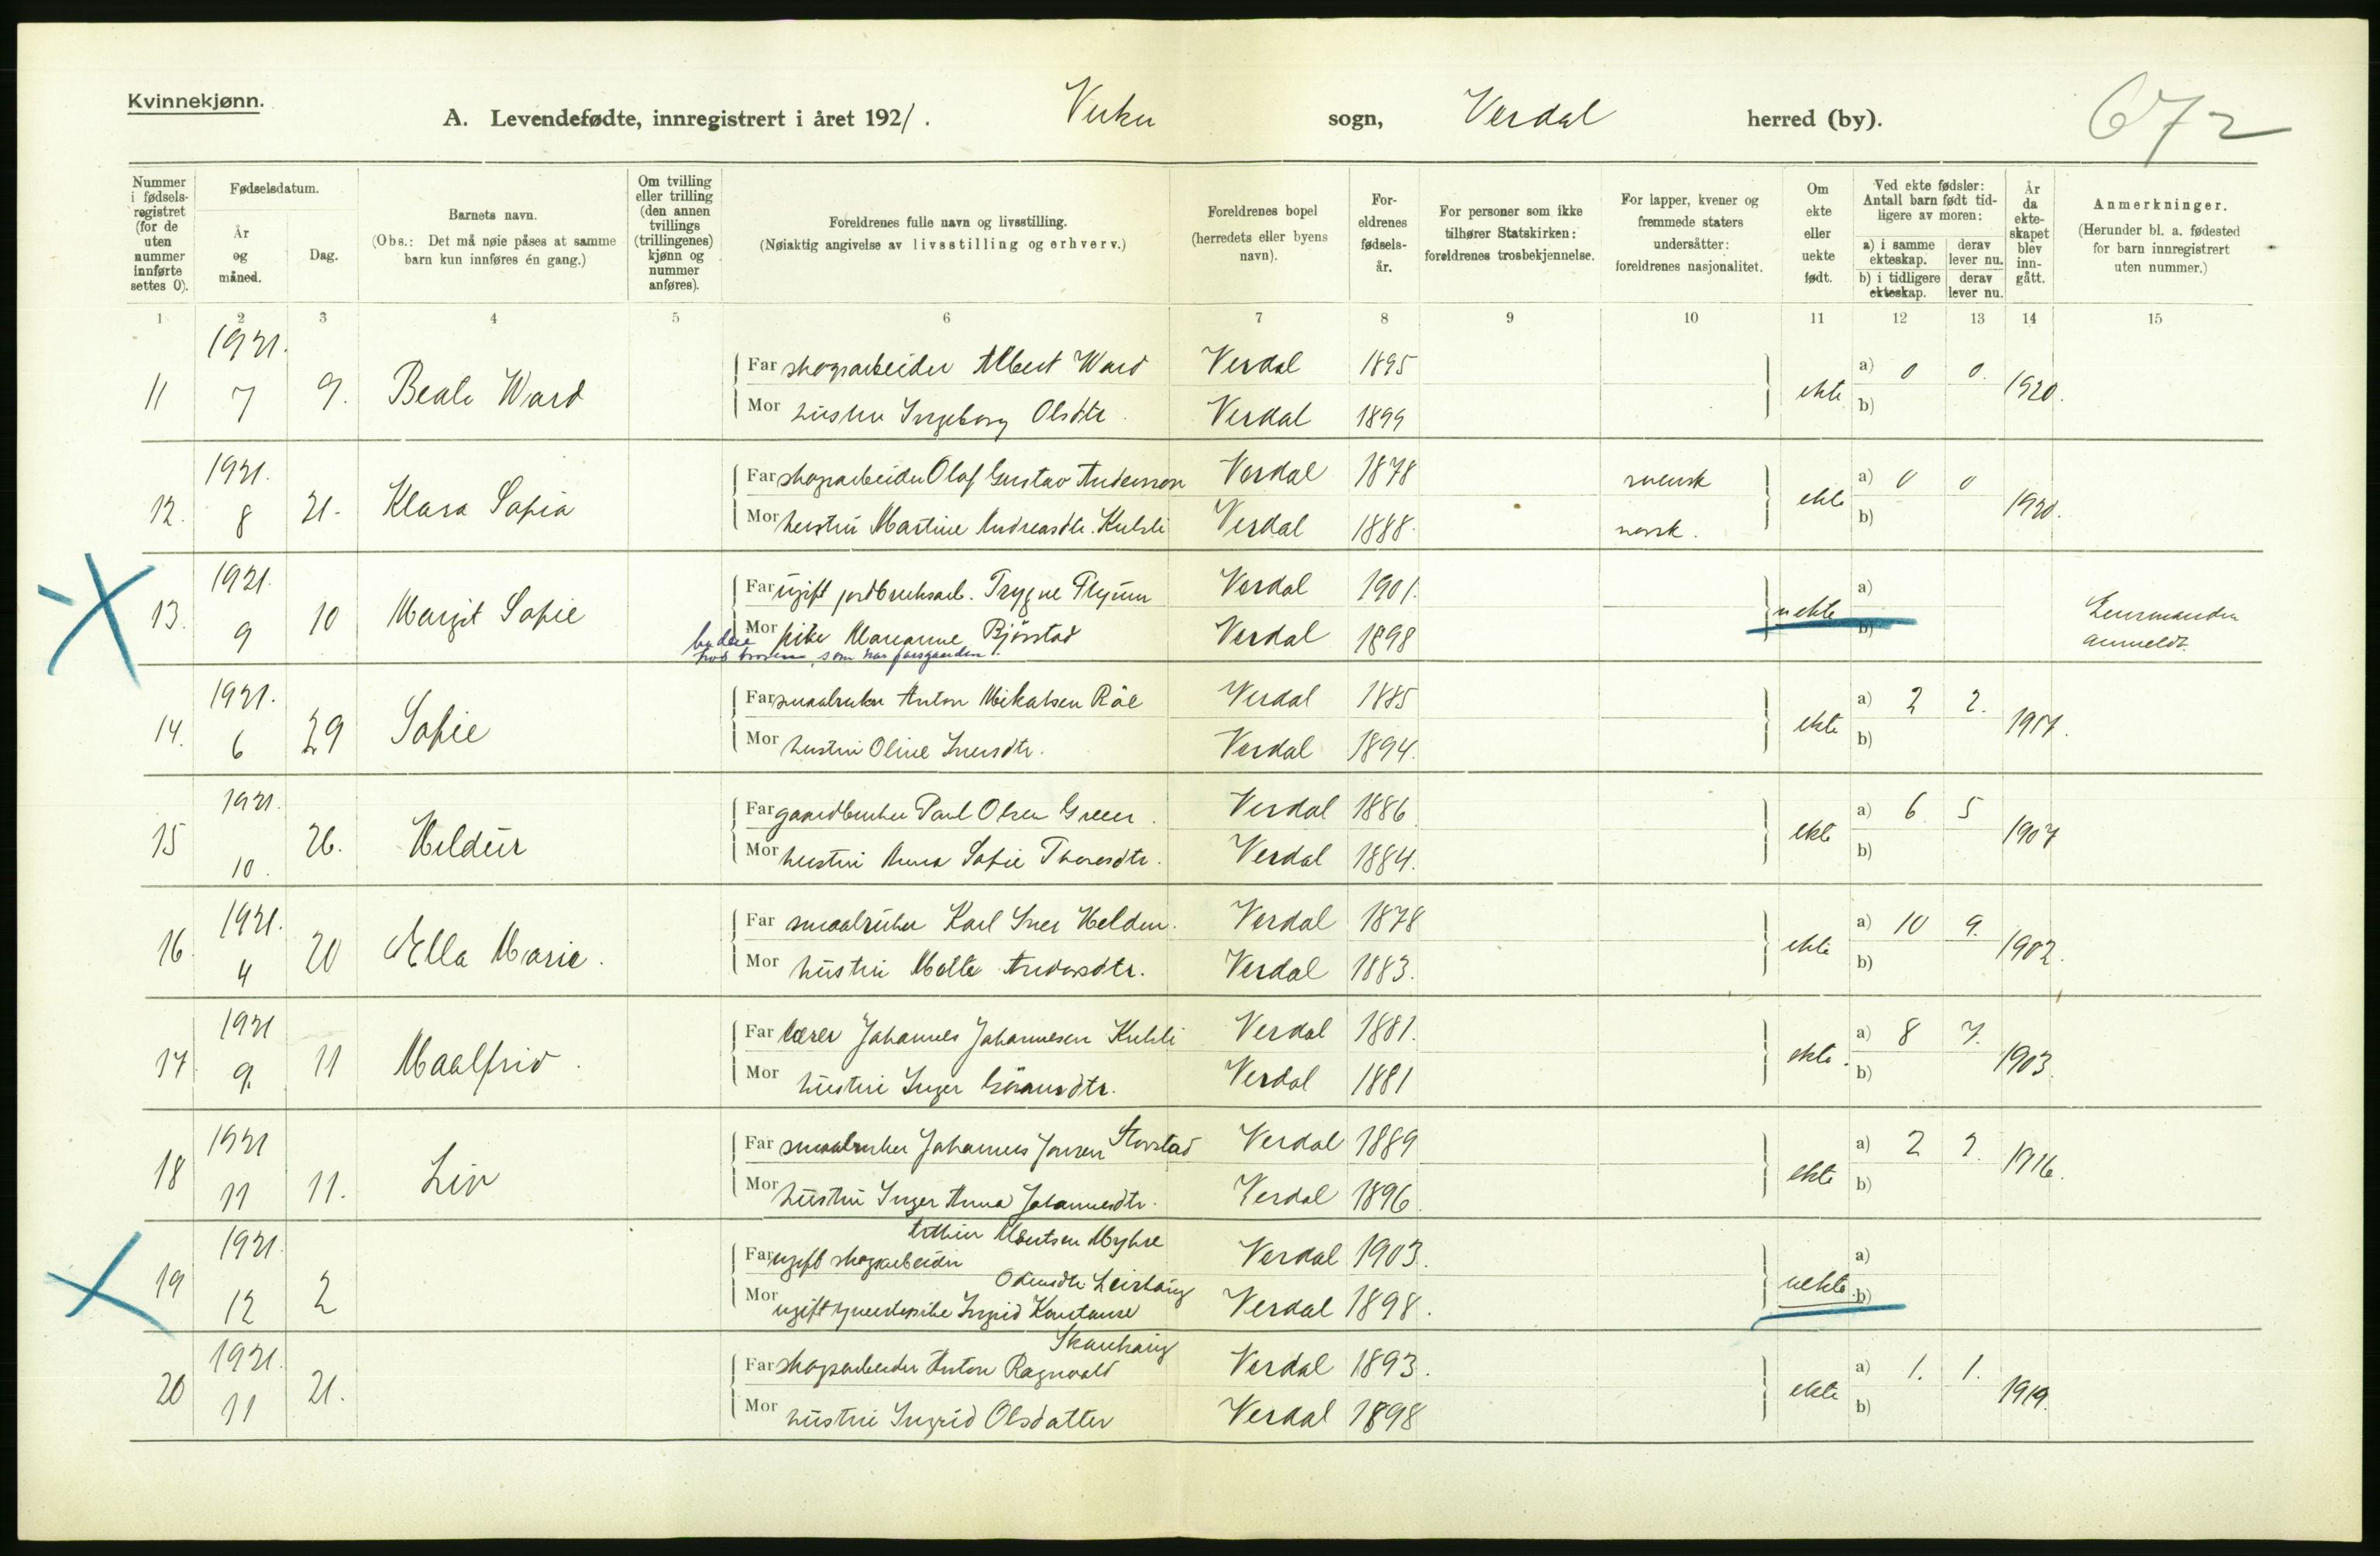 Kvinnekjønn.
A. Levendefødte, innregistrert i året 1921. Vuku sogn, Verdal herred (by).
672
Nummer i fødsels-registret (for de uten nummer innførte settes 0).
Fødselsdatum.
År og måned.
Dag.
Barnets navn.
(Obs.: Det må nøie påses at samme barn kun innføres én gang.)
Om tvilling eller trilling (den annen tvillings (trillingenes) kjønn og nummer anføres).
Foreldrenes fulle navn og livsstilling.
(Nøiaktig angivelse av livsstilling og erhverv.)
Foreldrenes bopel (herredets eller byens navn).
For-eldrenes fødsels-år.
For personer som ikke tilhører Statskirken: foreldrenes trosbekjennelse.
For lapper, kvener og fremmede staters undersåtter: foreldrenes nasjonalitet.
Om ekte eller uekte født.
Ved ekte fødsler: Antall barn født tid-ligere av moren:
a) i samme ekteskap. derav lever nu.
b) i tidligere ekteskap. derav lever nu.
År da ekte-skapet blev inn-gått.
Anmerkninger.
(Herunder bl. a. fødested for barn innregistrert uten nummer.)
1 2 3 4 5 6 7 8 9 10 11 12 13 14 15
1921.
11 7 9. Beate Ward
Far skogsarbeider Albert Ward Verdal 1895
Mor hustru Ingeborg Olsdtr. Verdal 1899
ekte a) 0 0. b) 1920.
1921.
12. 8 21. Klara Sofia
Far skogsarbeider Olaf Gustav Andersson Verdal 1878 svensk
Mor hustru Martine Andreasdtr. Kulsli Verdal 1888. norsk.
ekte a) 0 0 b) 1920.
1921.
13. 9 10 Margit Sofie
Far ugift jordbruksarb. Trygve Flyum Verdal 1901.
Mor pike Marianne Bjørstad Verdal 1898
budeie hos broren, som har farsgaarden.
uekte a) b)
Lensmanden anmeldt.
1921.
14. 6 29 Sofie
Far smaabruker Anton Mikalsen Röe Verdal 1885
Mor hustru Oline Iversdtr. Verdal 1894.
ekte a) 2 2. b) 1917.
1921.
15 10. 26. Hildur
Far gaardbruker Paul Olsen Green. Verdal 1886
Mor hustru Anna Sofie Thoresdtr. Verdal 1884.
ekte a) 6 5 b) 1907
1921.
16. 4 20 Ella Marie.
Far smaabruker Karl Iver Helden. Verdal 1878
Mor hustru Mette Andersdtr. Verdal 1883.
ekte a) 10 9. b) 1902.
1921
17. 9. 11 Maalfrid.
Far lærer Johannes Johannesen Kulsli Verdal 1881.
Mor hustru Inger Göransdtr. Verdal 1881
ekte. a) 8 7. b) 1903.
1921
18 11 11. Liv
Far smaabruker Johannes Jonsen Storstad Verdal 1889
Mor hustru Inger Anna Johannesdtr. Verdal 1896
ekte a) 2 2. b) 1916.
1921.
19 12 2
Arthur Albertsen Myhre
Far ugift skogsarbeider Verdal 1903.
Odensdtr. Leirhaug
Mor ugift tjenestepike Ingrid Konstanse Verdal 1898.
uekte a) b)
1921.
20 11 21.
Skauhaug
Far skogsarbeider Anton Ragnvald Verdal 1893.
Mor hustru Ingrid Olsdatter Verdal 1898
ekte a) 1. 1. b) 1919.